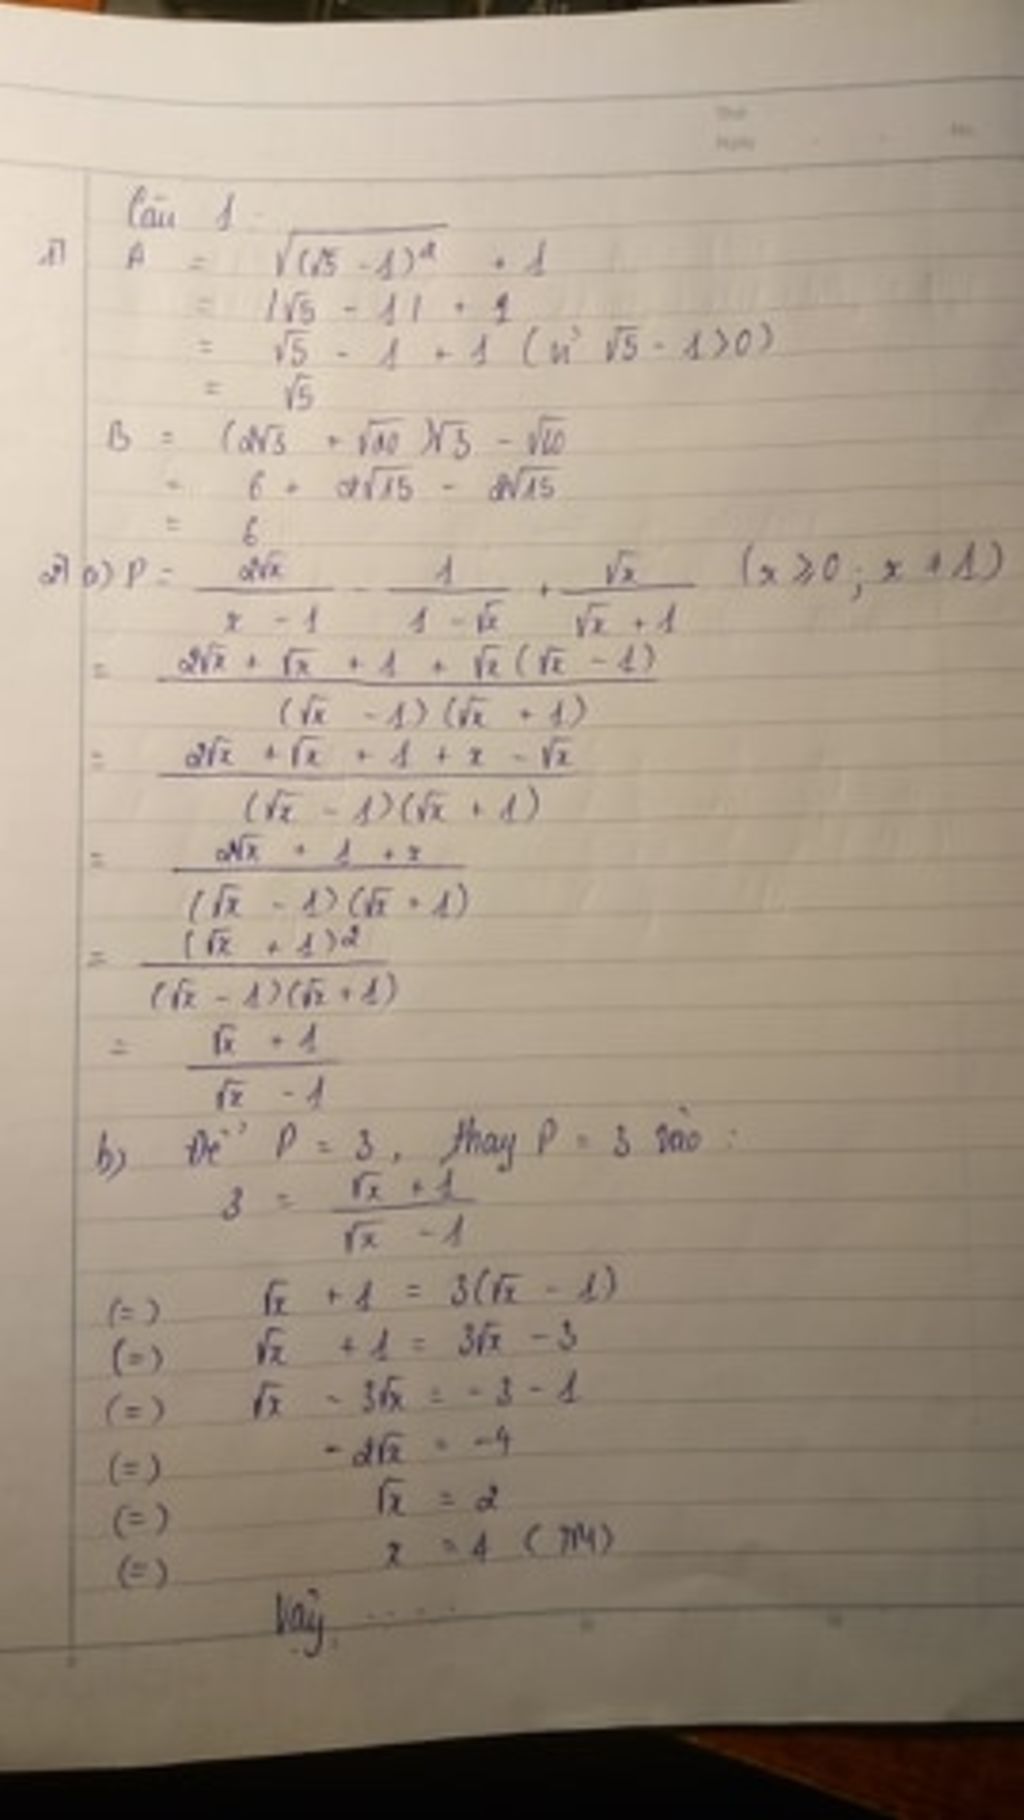 Thứ
Ngày . . No.
Câu 1 :
1) A = √((√5 - 1)²) + 1
= |√5 - 1| + 1
= √5 - 1 + 1 (vì √5 - 1 > 0)
= √5
B = (2√3 + √20)√3 - √60
= 6 + 2√15 - 2√15
= 6
2) a) P = 2√x / (x - 1) - 1 / (1 - √x) + √x / (√x + 1) (x ≥ 0 ; x ≠ 1)
= (2√x + √x + 1 + √x(√x - 1)) / ((√x - 1)(√x + 1))
= (2√x + √x + 1 + x - √x) / ((√x - 1)(√x + 1))
= (2√x + 1 + x) / ((√x - 1)(√x + 1))
= (√x + 1)² / ((√x - 1)(√x + 1))
= (√x + 1) / (√x - 1)
b) Để P = 3, thay P = 3 vào :
3 = (√x + 1) / (√x - 1)
(=) √x + 1 = 3(√x - 1)
(=) √x + 1 = 3√x - 3
(=) √x - 3√x = -3 - 1
(=) -2√x = -4
(=) √x = 2
(=) x = 4 (TM)
Vậy .....